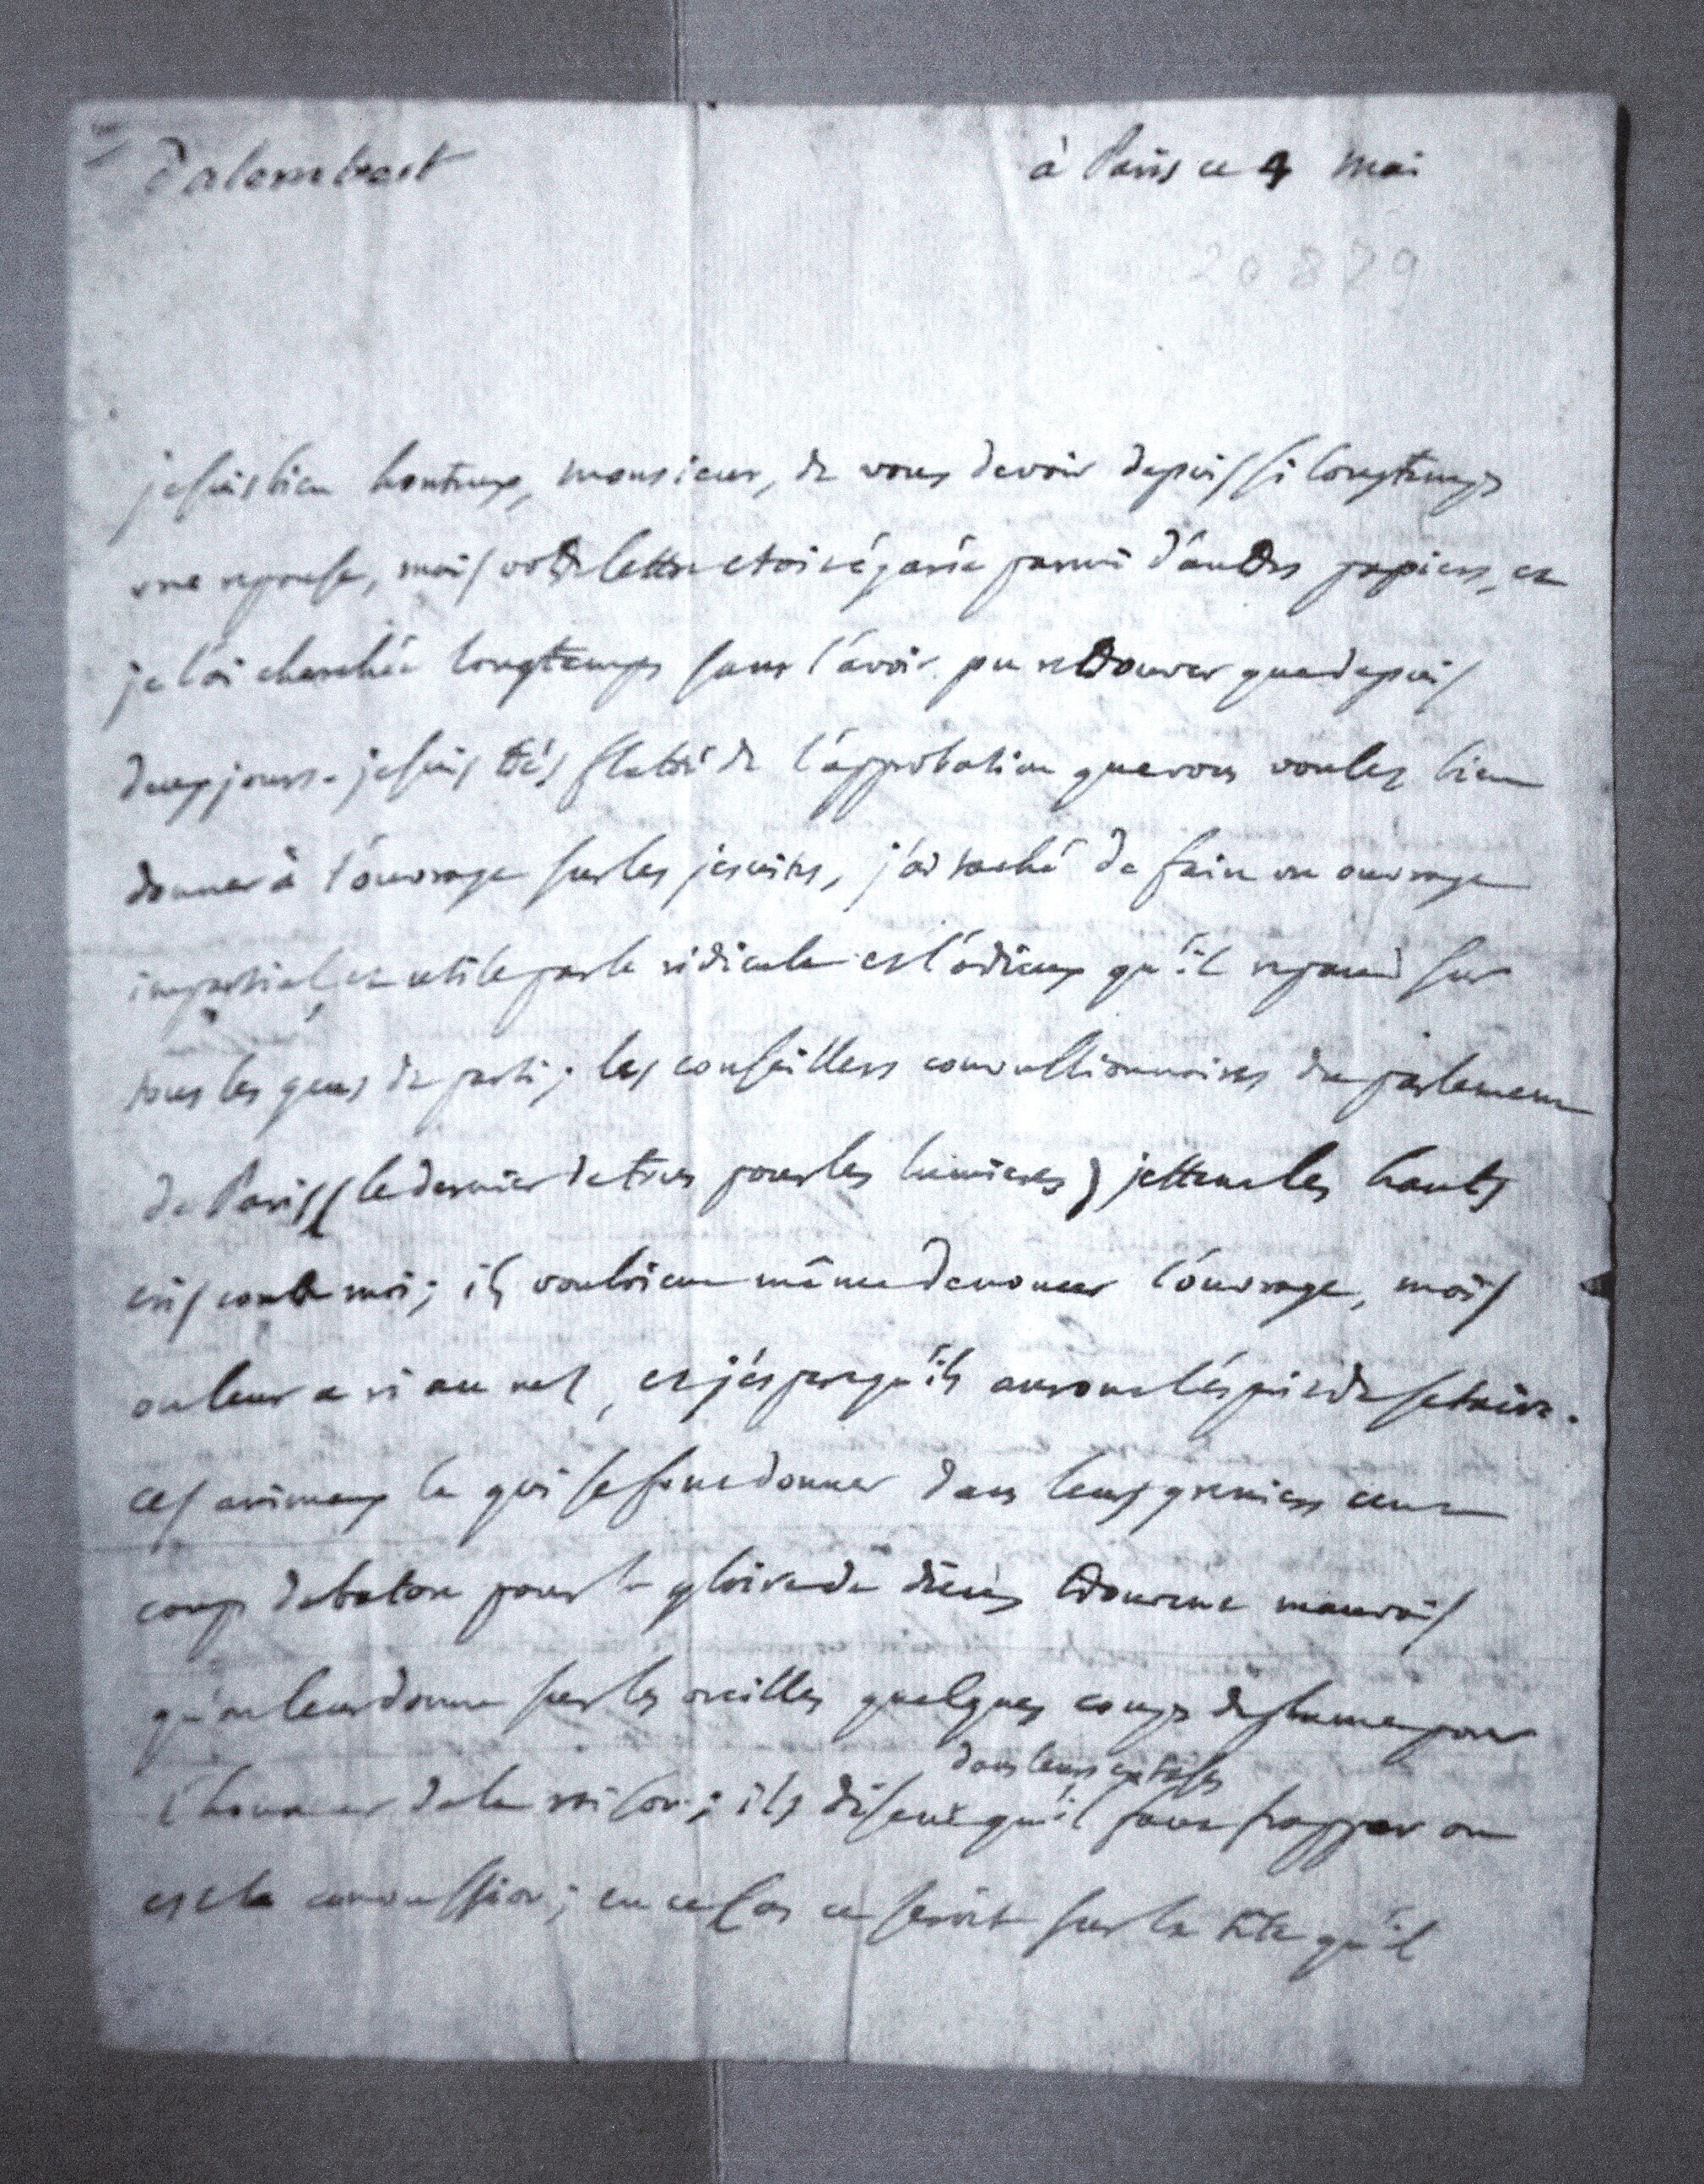 Dalembert
à Paris ce 4 mai
20879
je suis bien honteux, monsieur, de vous devoir depuis si longtemps
une reponse, mais votre lettre etoit égarée parmi d'autres papiers, et
je l'ai cherchée longtemps sans l'avoir pu retrouver que depuis
deux jours. je suis très flatté de l'approbation que vous voulez bien
donner à l'ouvrage sur les jesuites, j'ai taché de faire un ouvrage
impartial et utile par le ridicule et l'odieux qu'il repand sur
tous les gens de parti; les conseillers convulsionnaires du parlement
de Paris (le dernier de tous pour les lumieres) jettent les hauts
cris contre moi; ils vouloient même denoncer l'ouvrage, mais
on leur a ri au nez, et j'espere qu'ils auront l'esprit de se taire.
ces animaux la qui se font donner dans leurs greniers cent
coups de baton pour la gloire de dieu, trouvent mauvais
qu'on leur donne sur les oreilles quelques coups de plume pour
dans leurs extases
l'honneur de la raison; ils disent qu'il faut frapper où
est la convulsion; en ce cas ce seroit sur la tête qu'il